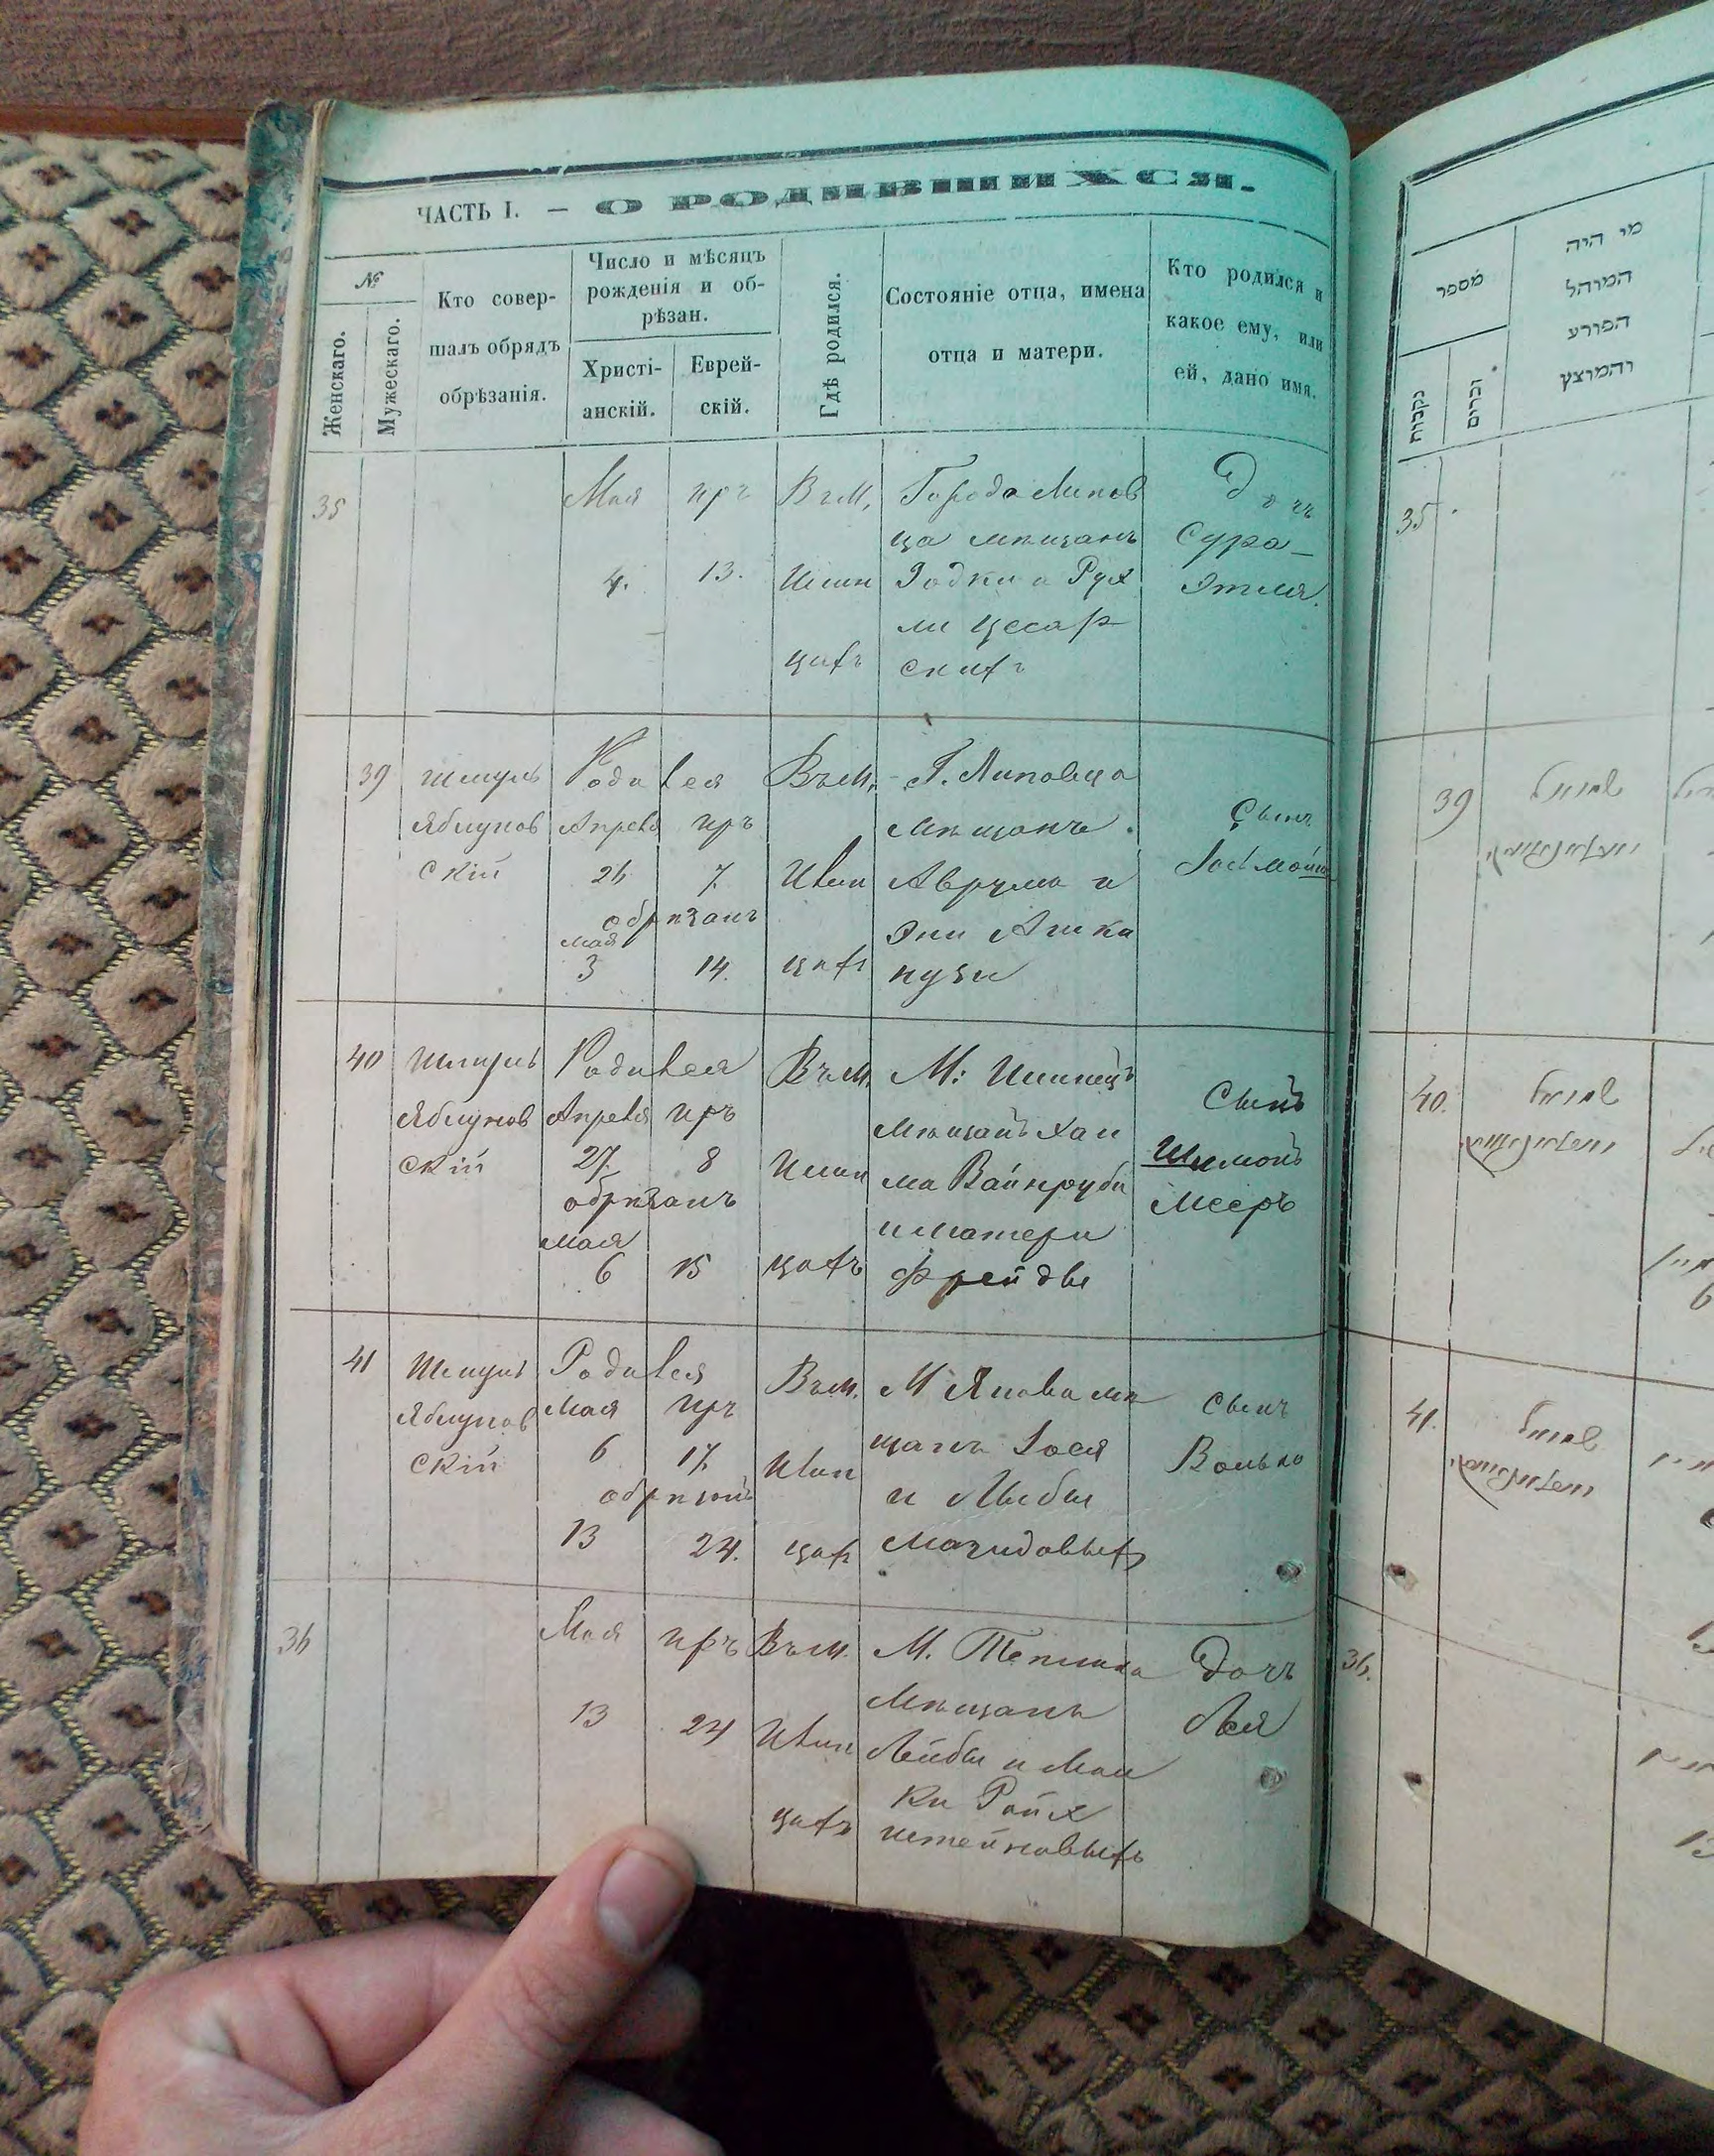 ЧАСТЬ I. — О РОДИВШИХСЯ.
№
Женскаго.
Мужескаго.
Кто совер-
шалъ обрядъ
обрѣзанія.
Число и мѣсяцъ
рожденія и об-
рѣзан.
Христі-
анскій.
Еврей-
скій.
Гдѣ родился.
Состояніе отца, имена
отца и матери.
Кто родился и
какое ему, или
ей, дано имя.
35
Мая
4.
иръ
13.
Въ М.
Илин
цахъ
Города Липов
ца мѣщанъ
Рух
ли Цесар
скихъ
Дочь
Сура-
Этля.
39
Шмуль
Яблунов
скій
Родился
Апреля иръ
26 7
обрѣзанъ
мая
3 14.
Въ М.
Илин
цахъ
Г. Липовца
мѣщанъ
Аврума и
Эни Ашка
нузи
Сынъ
40
Шмуль
Яблунов
скій
Родился
Апреля иръ
27 8
обрѣзанъ
мая
6 15
Въ М.
Илин
цахъ
М: Илинецъ
мѣщанъ Хаи
ма Вайнруба
и матери
Фрейды
Сынъ
Шимонъ
Мееръ
41
Шмуль
Яблунов
скій
Родился
Мая иръ
6 17
обрѣзанъ
13 24.
Въ М.
Илин
цах
М Янова мѣ
щанъ Іося
и Либы
Магидовыхъ
Сынъ
Волько
36
Мая
13
иръ
24
Въ М.
Илин
цахъ
М. Теплика
Мѣщанъ
Лейбы и Мал
ки Райх
штейновыхъ
Дочь
Лея
מספר
נקבות
זכרים
מי היה
המוהל
הפורע
והמוצץ
35.
39
שמואל
40.
שמואל
41.
שמואל
36.